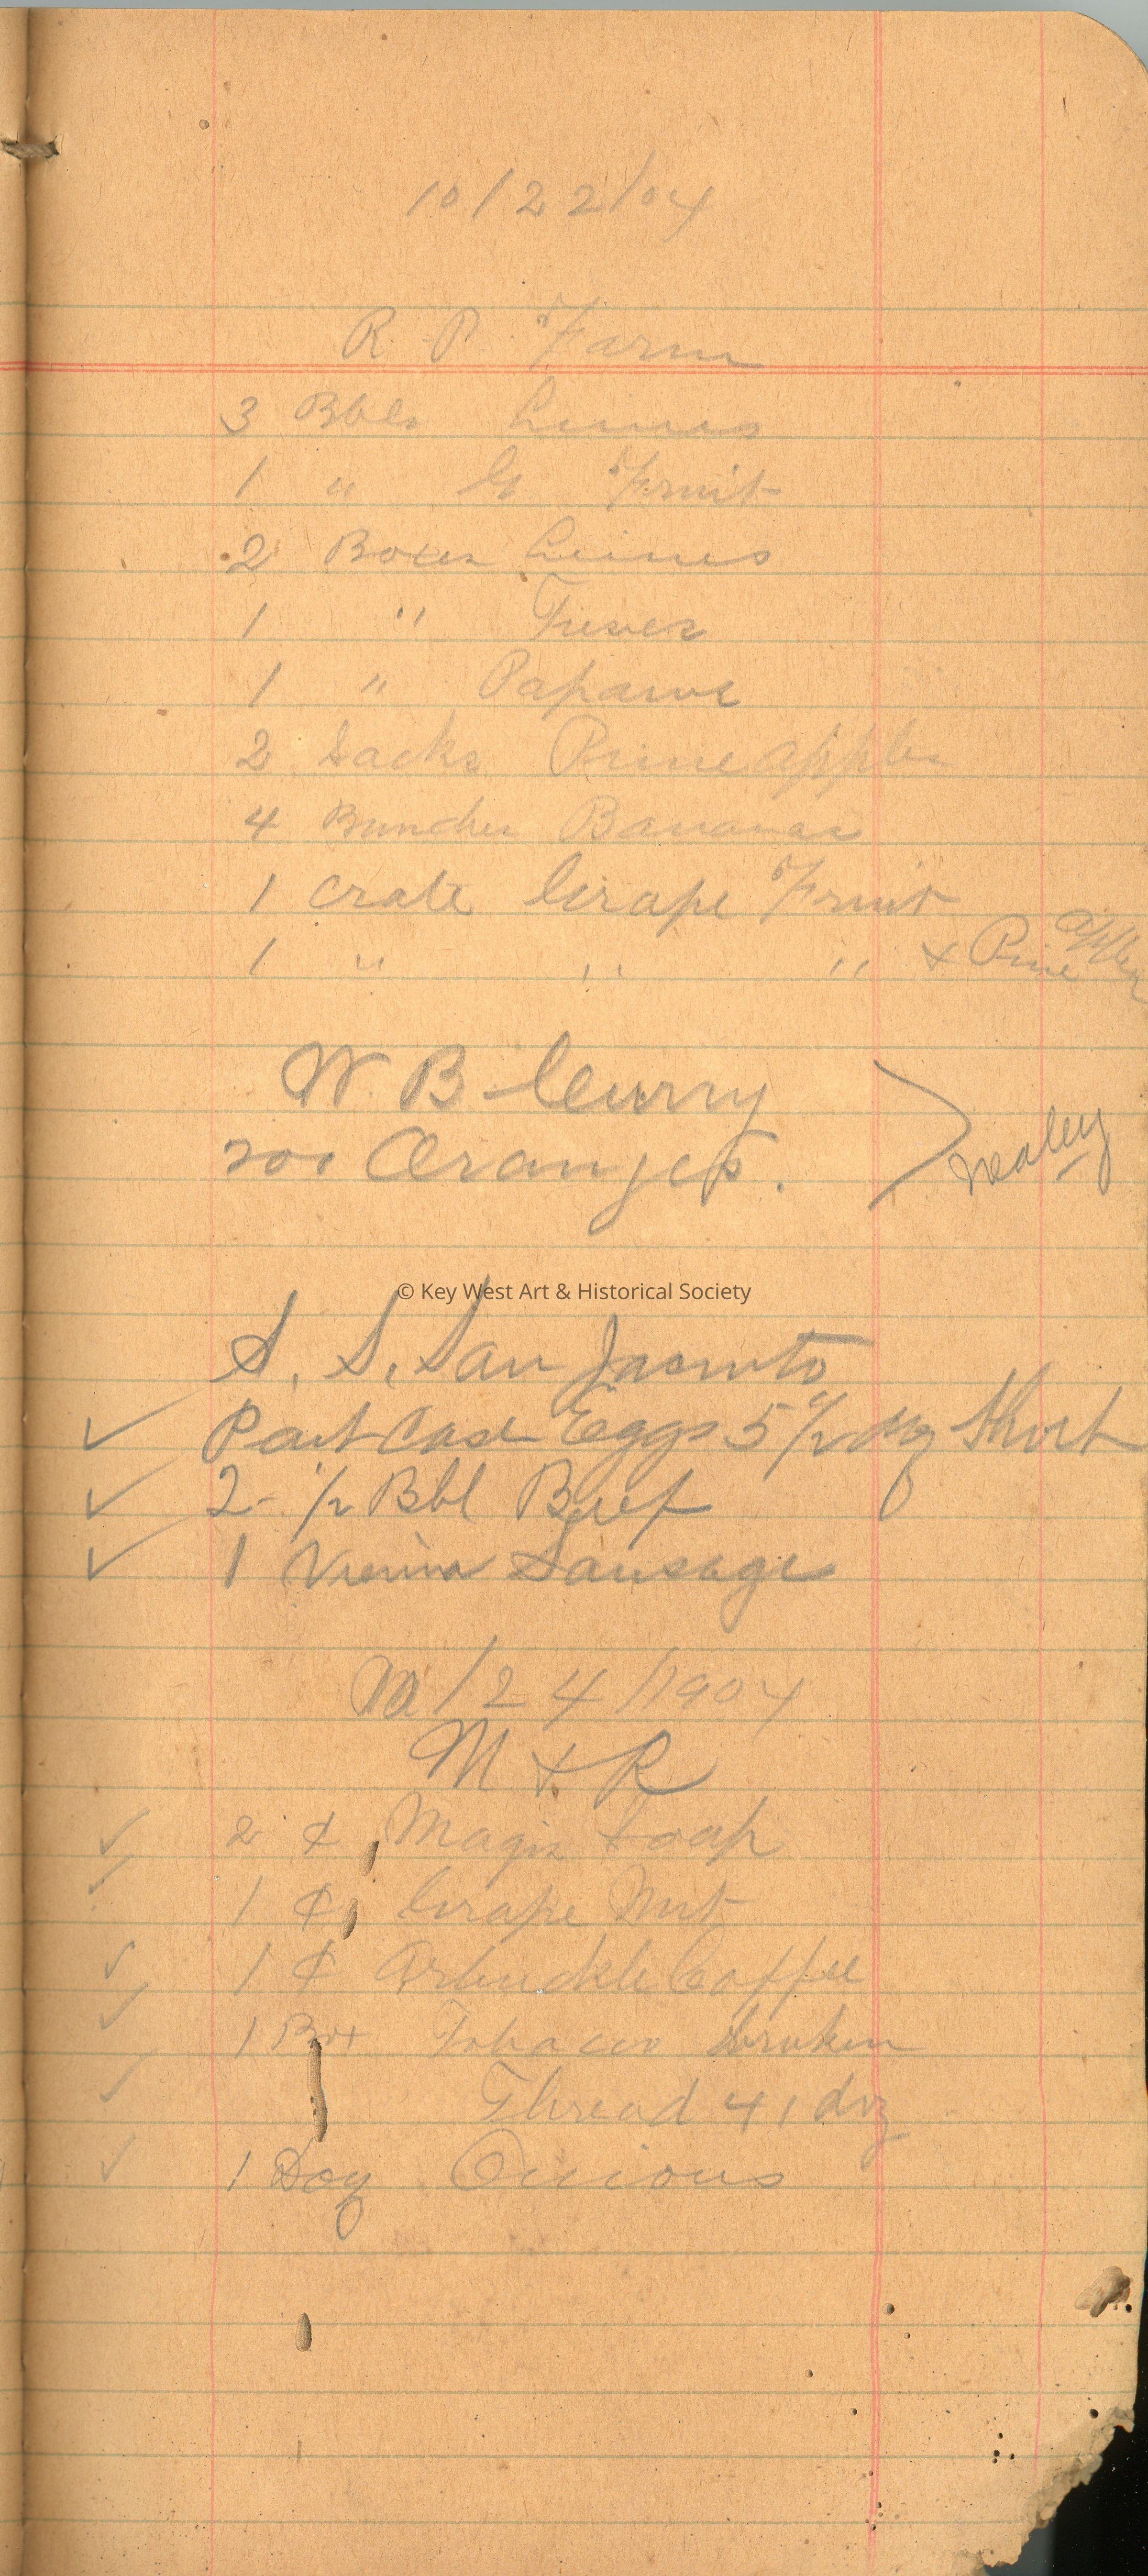 10/22/04
R P Farm
3 Bbls Limes
1 " G Fruit
2 Boxes Limes
1 " Trees
1 " Papaws
2 Sacks Pineapples
4 Bunches Bananas
1 Crate Grape Fruit
1 " " " + Pine apples
W. B Curry
200 Oranges.
Nealey
© Key West Art & Historical Society
S. S. San Jacinto
✓ Part Case Eggs 5 1/2 dz Short
✓ 2- 1/2 Bbl Beef
✓ 1 Vienna Sausage
10/24/1904
M + R
✓ 2 ₵ Magic Soap
✓ 1 ₵ Grape Nut
✓ 1 ₵ Arbuckle Coffee
✓ 1 Box Tobacco broken
✓ Thread 41 doz
✓ 1 Doz Onions